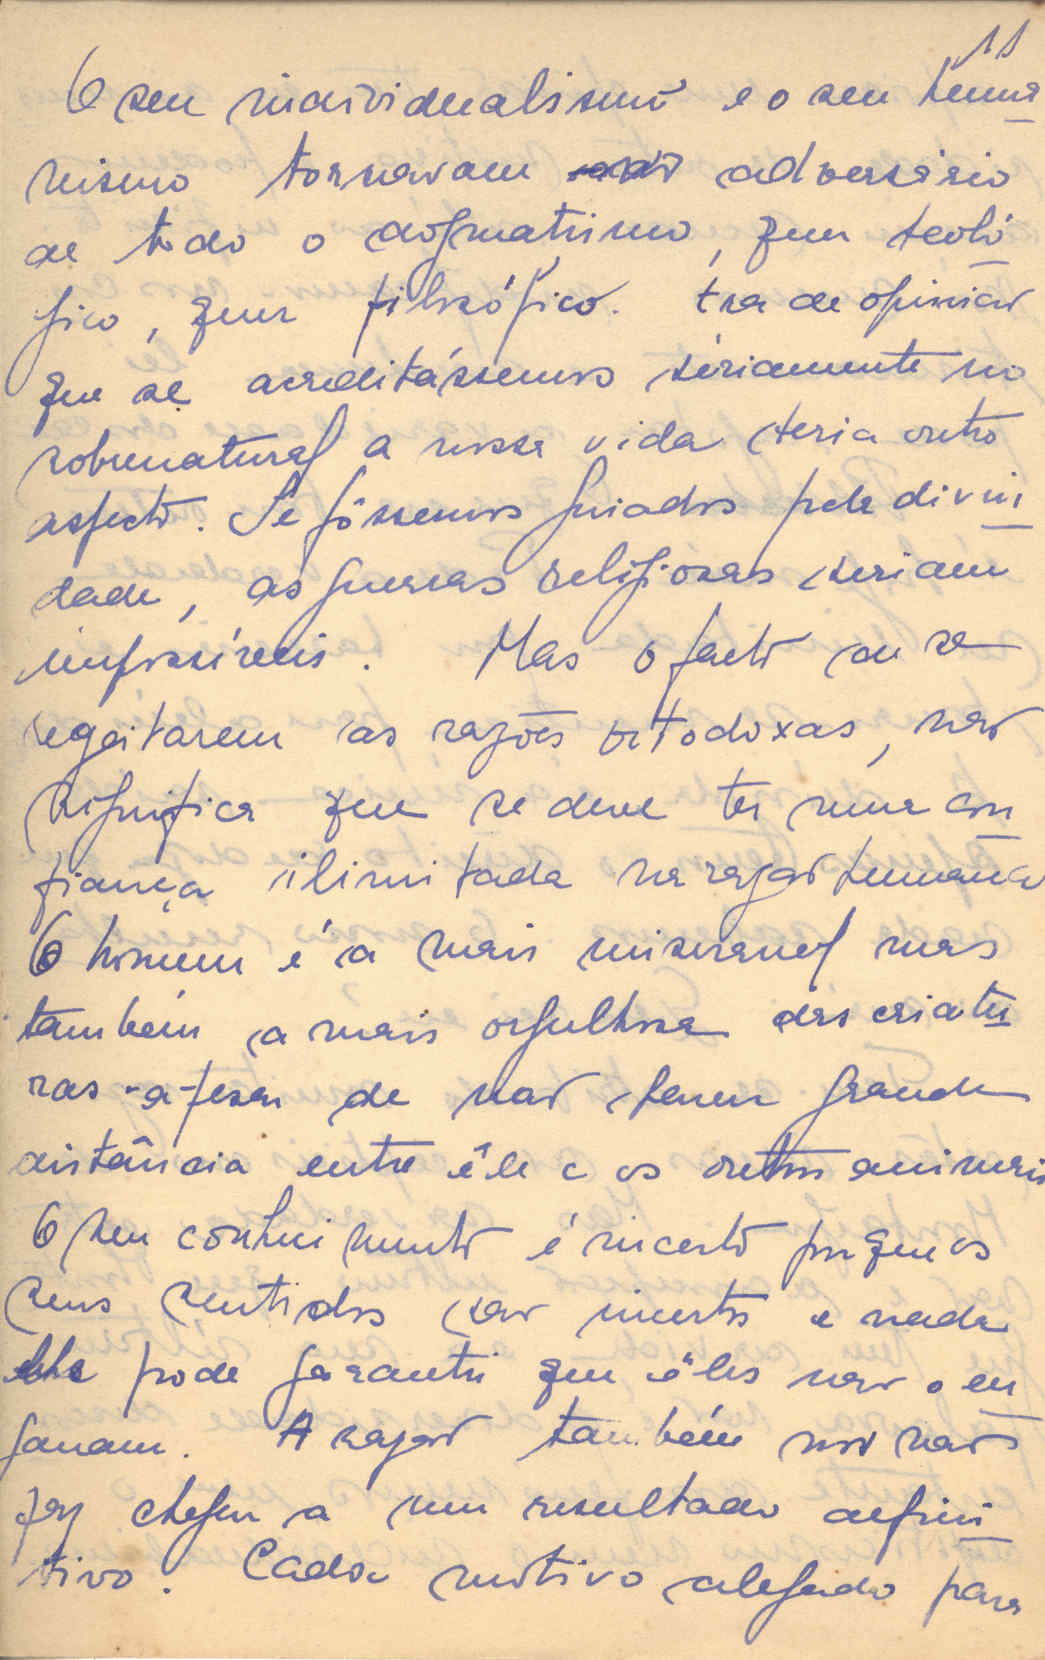 11
O seu individualismo e o seu huma
nismo tornavam adversário
de todo o dogmatismo, quer teoló
gico, quer filosófico. Era de opinião
que se acreditássemos sèriamente no
sobrenatural a nossa vida teria outro
aspecto. Se fôssemos guiados pela divin
dade, as guerras religiosas seriam
impossíveis. Mas o facto de se
regeitarem as razões ortodoxas, não
significa que se deve ter uma con
fiança ilimitada na razão humana
O homem é a mais miseravel mas
também a mais orgulhosa das criatu
ras - apesar de não haver grande
distância entre êle e os outros animais
O seu conhecimento é incerto porque os
seus sentidos são incertos e nada
lhe pode garantir que êles não o en
ganam. A razão também nos não
faz chegar a um resultado defini
tivo. Cada motivo alegado para